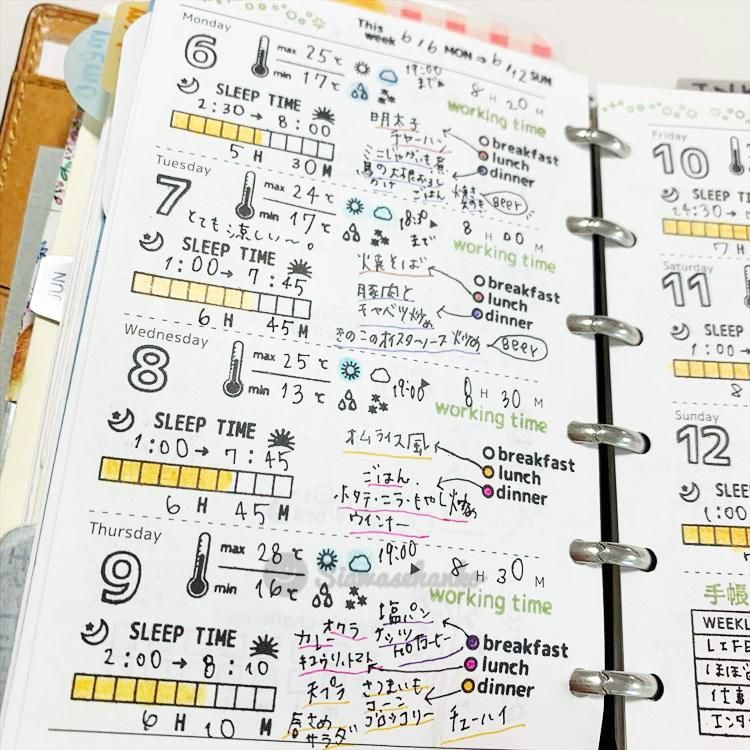 This week 6/6 MON → 6/12 SUN
Monday
6
max 25℃
min 17℃
19:00 まで
8 H 20 M
working time
SLEEP TIME
2:30 → 8:00
5 H 30 M
明太子
チャーハン
ごはん
Beer
breakfast
lunch
dinner
Tuesday
7
max 24℃
min 17℃
まで
8 H 00 M
working time
とても涼しい〜。
SLEEP TIME
1:00 → 7:45
6 H 45 M
焼きそば
豚肉と
キャベツ炒め
きのこのオイスターソース炒め
Beer
breakfast
lunch
dinner
Wednesday
8
max 25℃
min 13℃
19:00
8 H 30 M
working time
SLEEP TIME
1:00 → 7:45
6 H 45 M
オムライス風
ごはん
ホタテ・ニラ・もやし炒め
ウインナー
breakfast
lunch
dinner
Thursday
9
max 28℃
min 16℃
19:00
8 H 30 M
working time
SLEEP TIME
2:00 → 8:10
6 H 10 M
塩パン
オクラ
カレー
キュウリ、トマト
天プラ さつまいも
コーン
ブロッコリー
サラダ
チューハイ
breakfast
lunch
dinner
JUN
Friday
10
SLEEP TIME
24:30 →
7 H
Saturday
11
SLEEP
1:00 →
8
Sunday
12
SLEEP
1:00
手帳
WEEKLY
LIFE
仕事